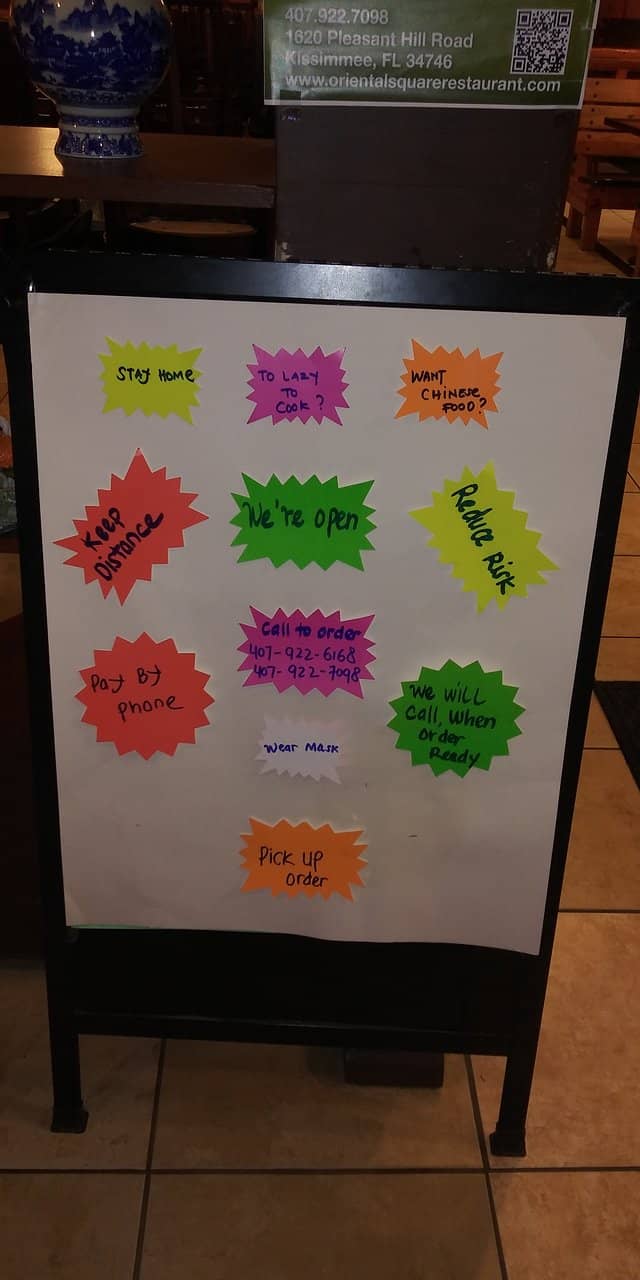 407.922.7098
1620 Pleasant Hill Road
Kissimmee, FL 34746
www.orientalsquarerestaurant.com
STAY HOME
TO LAZY
TO
COOK?
WANT
CHINESE
FOOD?
Keep
Distance
We're open
Reduce Risk
Call to order
407-922-6168
407-922-7098
Pay By
phone
We will
Call, when
order
Ready
Wear Mask
Pick up
order